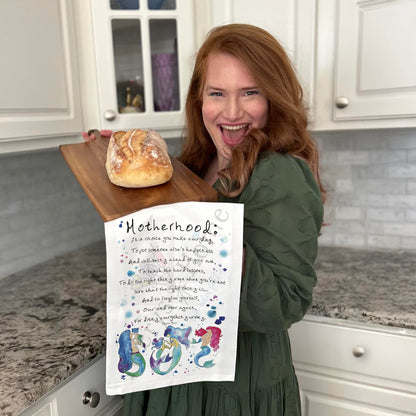 Motherhood:
Is a choice you make everyday,
To put someone else's happiness
And well-being ahead of your own,
To teach the hard lessons,
To do the right thing even when you're not
sure what the right thing is...
And to forgive yourself,
Over and over again,
For doing everything wrong.